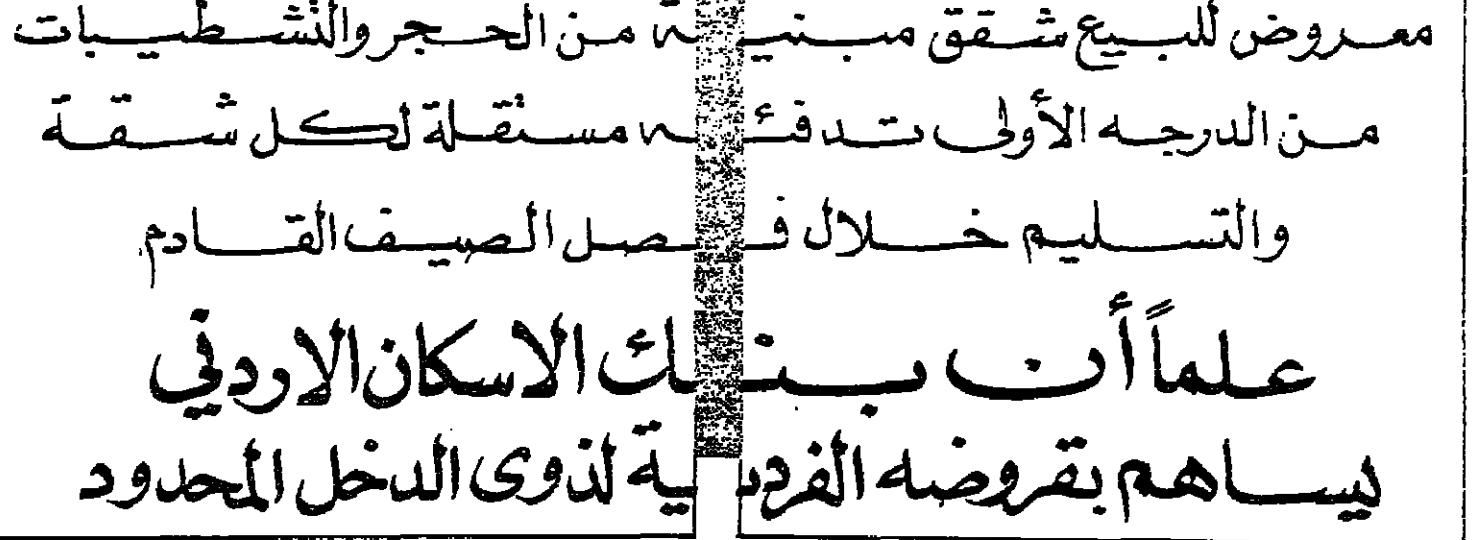 معروض للبيع شقق مبنيه من الحجر والتشطيبات
من الدرجه الأولى تدفئه مستقلة لكل شقة
والتسليم خلال فصل الصيف القادم
علماً أن بنك الاسكان الاردني
يساهم بقروضه الفردية لذوى الدخل المحدود